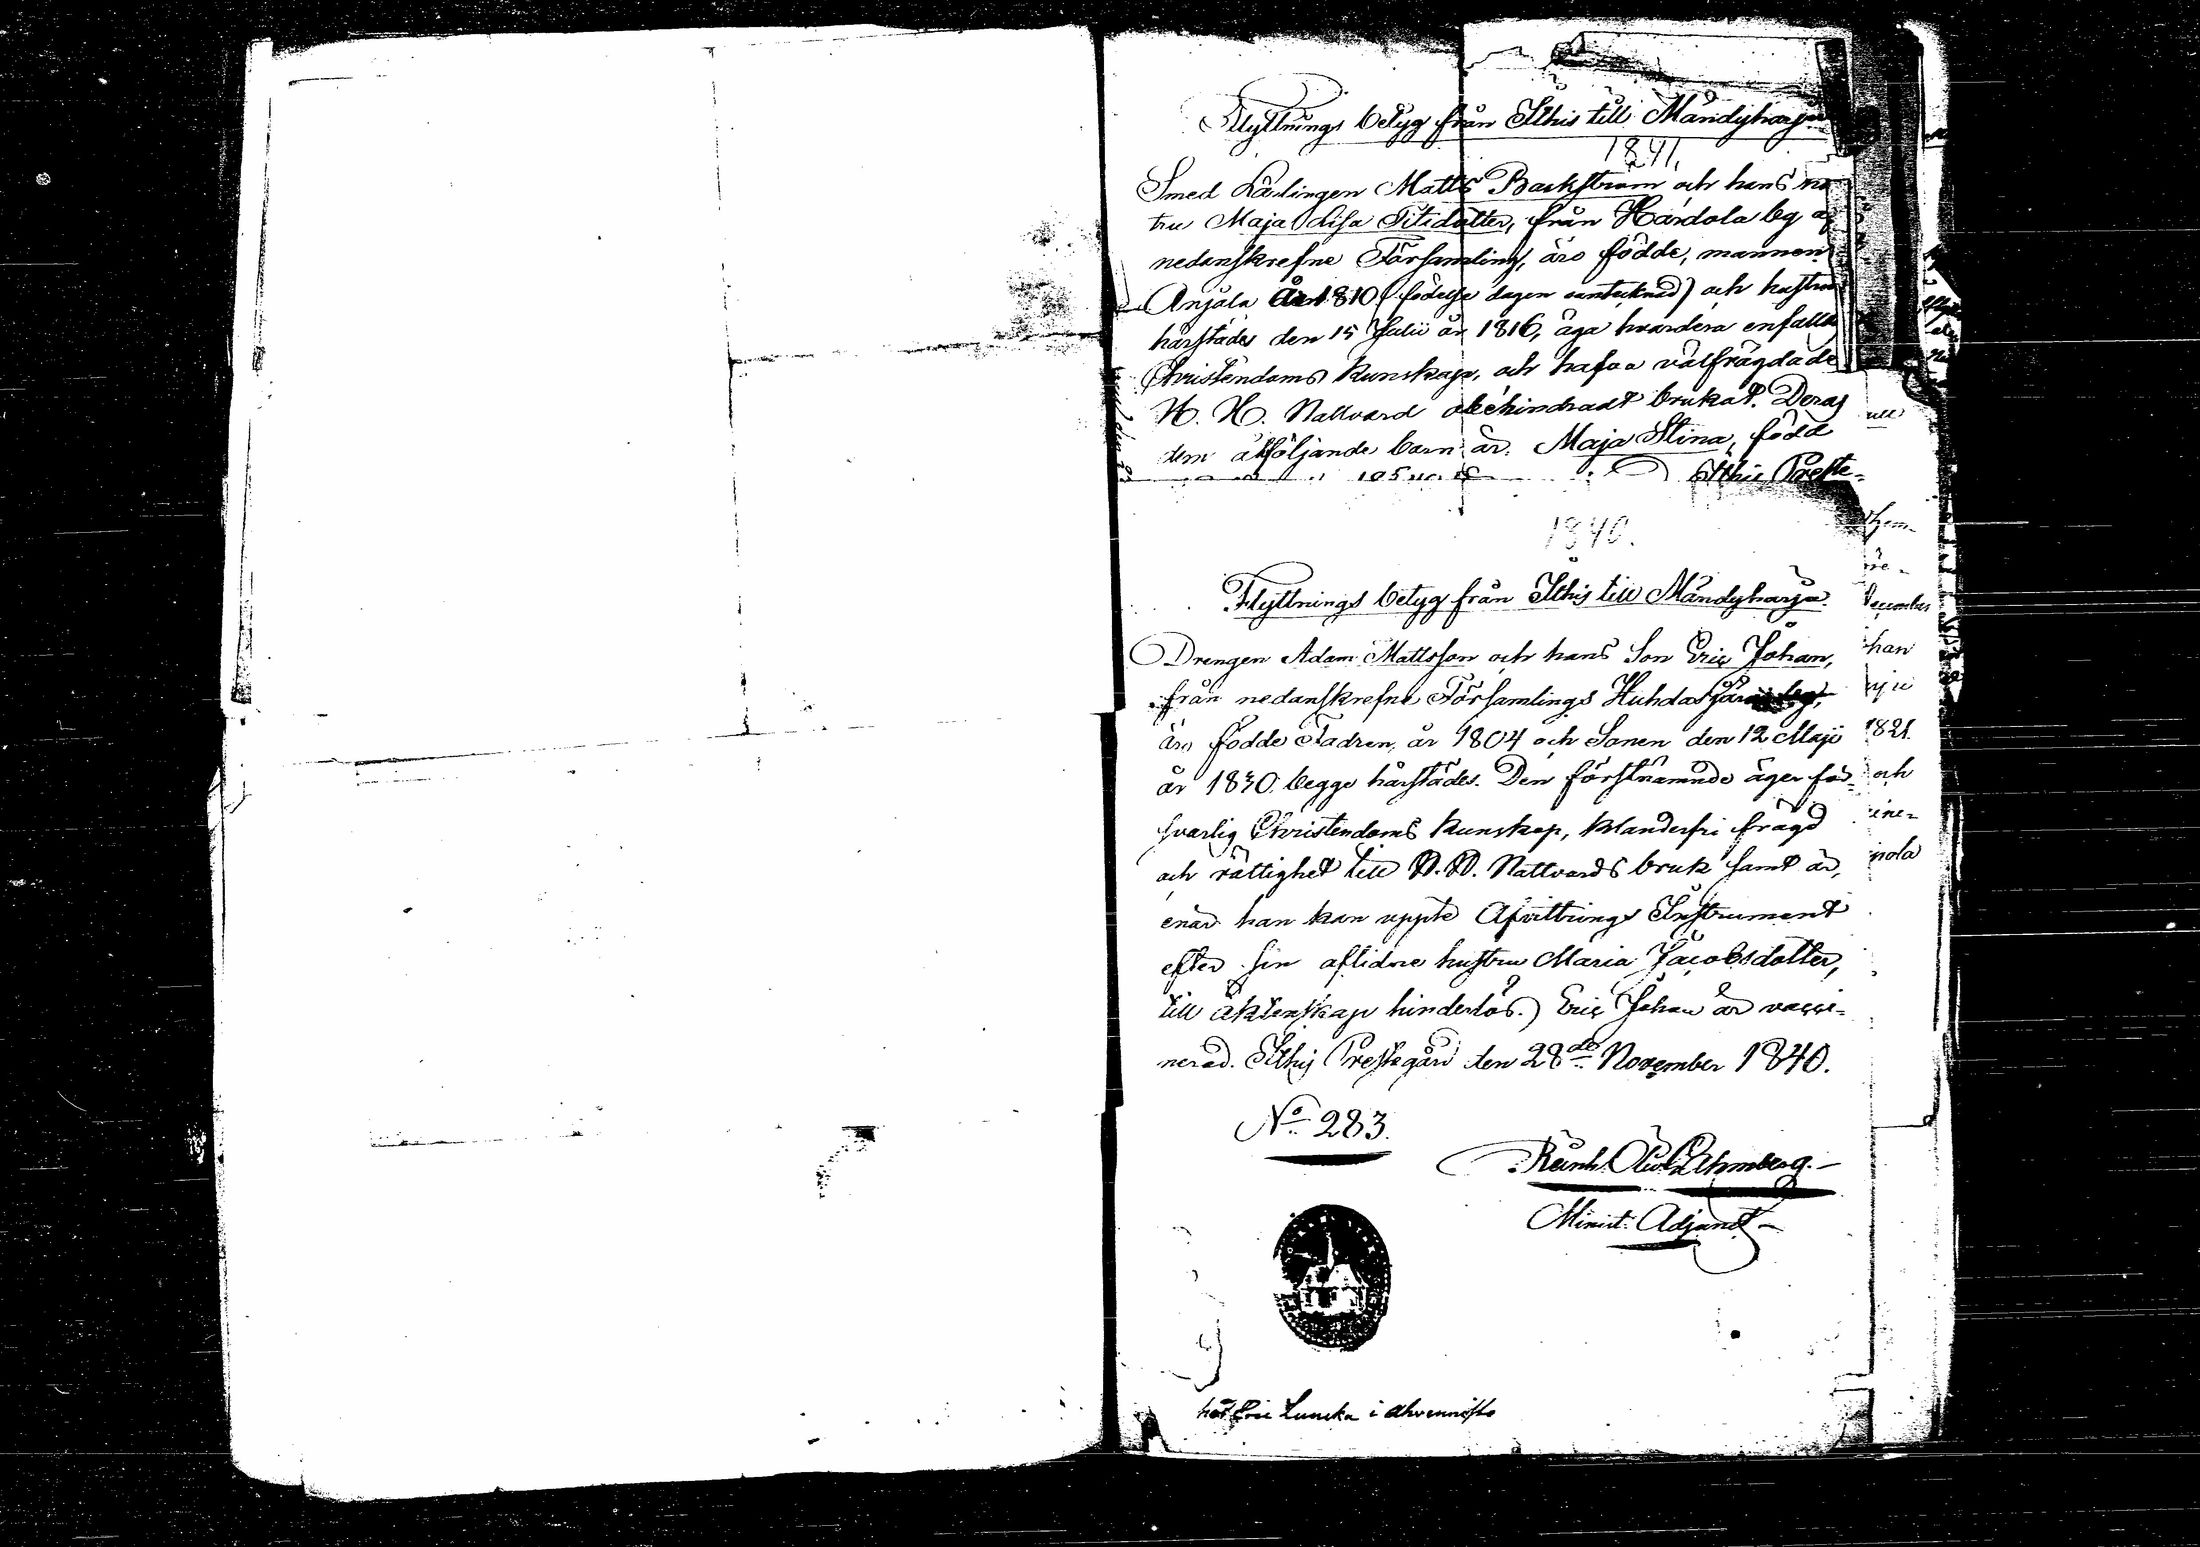 Flyttnings betyg från Itthis till Mändyharju
1841.
Smed Lärlingen Matts Backström och hans hu
tru Maja Lisa Titsdotter, från Härdola by af
nedanskrefne Församling, äro födde, mannen
Anjala År 1810 (födelse dagen oantecknad) och hustrun
härstädes den 15 Julii år 1816, äga hvardera enfallig
Christendoms kunskap, och hafva välfrägdade
H. H. Nattvard obehindradt brukat. Deras
dem åtföljande barn är: Maja Stina, född
Itthis Preste-
1840.
Flyttnings betyg från Itthis till Mändyharju.
Drengen Adam Mattsson och hans Son Eric Johan,
från nedanskrefne Församlings Huhdasjärvi by,
äro födde Fadren år 1804 och Sonen den 12 Maji
år 1830. begge härstädes. Den förstnämnde äger för-
svarlig Christendoms kunskap, klanderfri frägd
och rättighet till H. H. Nattvards bruk samt är,
enär han kan uppte Afvittrings Instrument
efter sin aflidne hustru Maria Jacobsdotter,
till äktenskap hinderlös. Eric Johan är vacci-
nerad. Itthis Prestegård den 28de November 1840.
No 283.
Reinh. Lehmberg.
Minist. Adjunct
hos Eric Luncka i Ahvennisto
till
hem-
re-
December
han
1821
och
ine-
pola